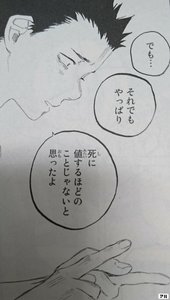 でも…
それでも
やっぱり
死に
値するほどの
ことじゃないと
思ったよ